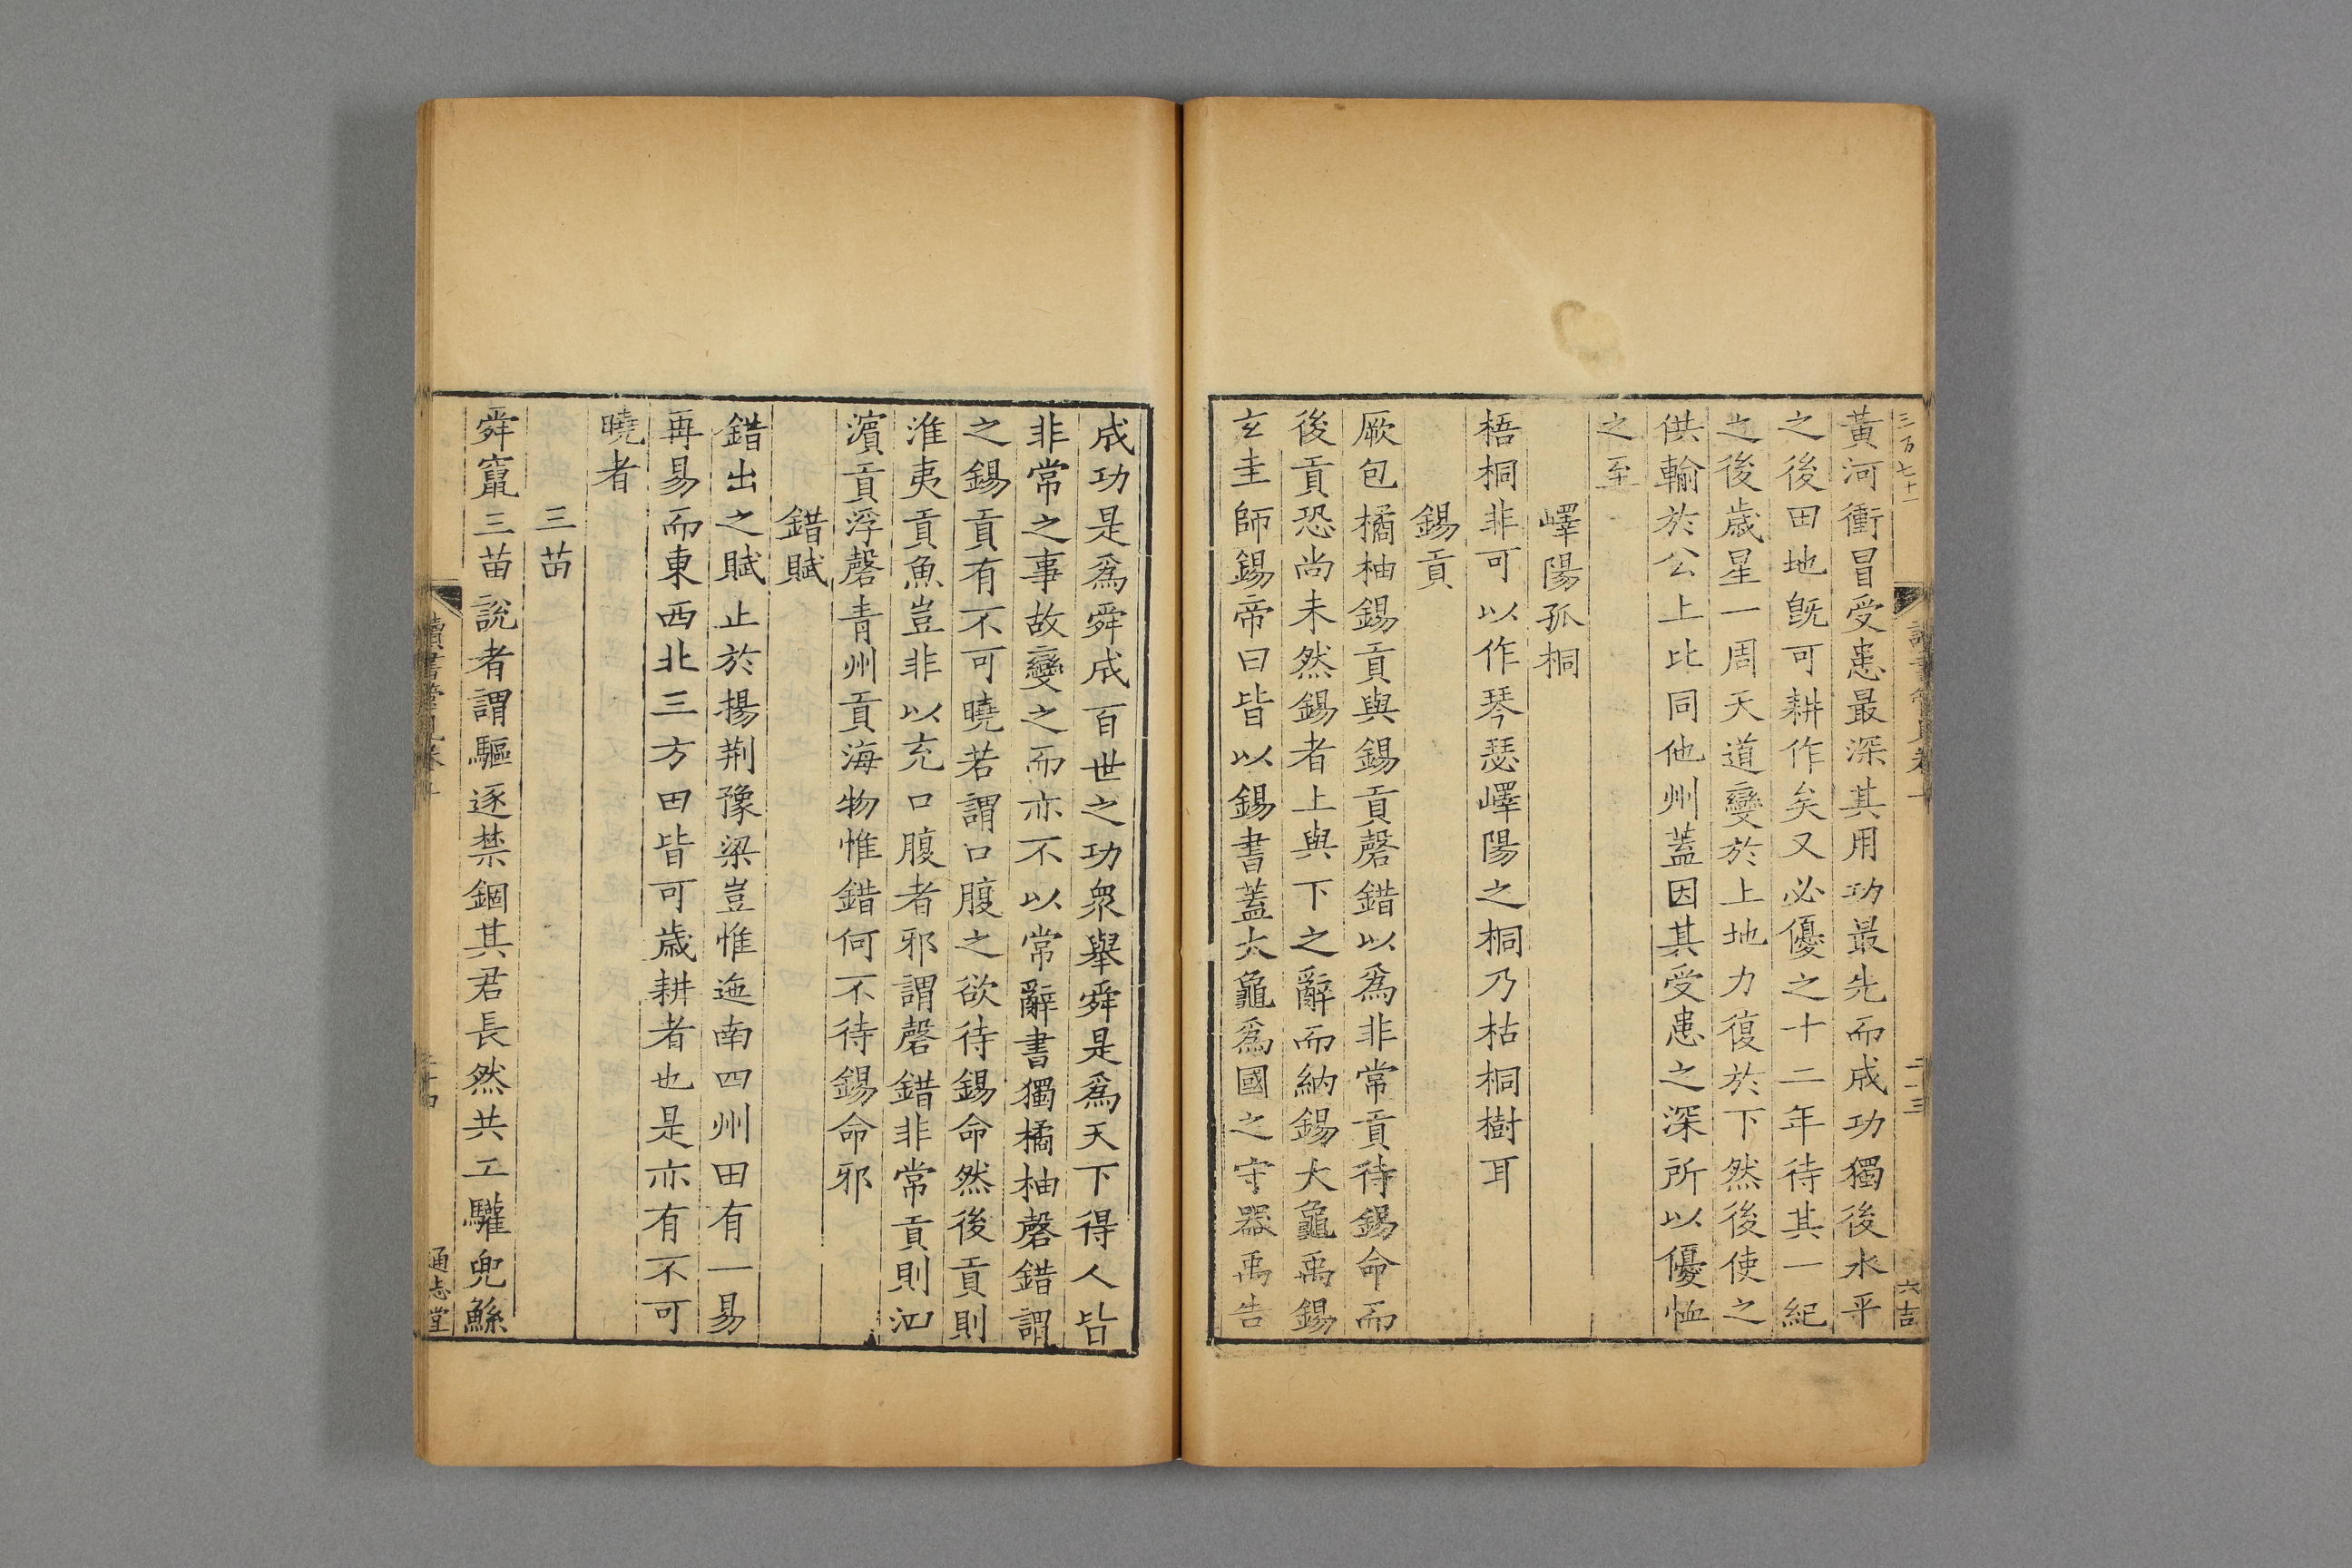 三百七十一
讀書管見卷上
二十三
六吉
黃河衝冒受患最深其用功最先而成功獨後水平
之後田地旣可耕作矣又必優之十二年待其一紀
之後歲星一周天道變於上地力復於下然後使之
供輸於公上比同他州蓋因其受患之深所以優恤
之至
嶧陽孤桐
梧桐非可以作琴瑟嶧陽之桐乃枯桐樹耳
錫貢
厥包橘柚錫貢與錫貢磬錯以爲非常貢待錫命而
後貢恐尚未然錫者上與下之辭而納錫大龜禹錫
玄圭師錫帝曰皆以錫書蓋大龜爲國之守器禹告
成功是爲舜成百世之功衆舉舜是爲天下得人皆
非常之事故變之而亦不以常辭書獨橘柚磬錯謂
之錫貢有不可曉若謂口腹之欲待錫命然後貢則
淮夷貢魚豈非以充口腹者邪謂磬錯非常貢則泗
濱貢浮磬青州貢海物惟錯何不待錫命邪
錯賦
錯出之賦止於揚荆豫梁豈惟迤南四州田有一易
再易而東西北三方田皆可歲耕者也是亦有不可
曉者
三苗
舜竄三苗說者謂驅逐禁錮其君長然共工驩兜鯀
讀書管見卷上
二十四
通志堂